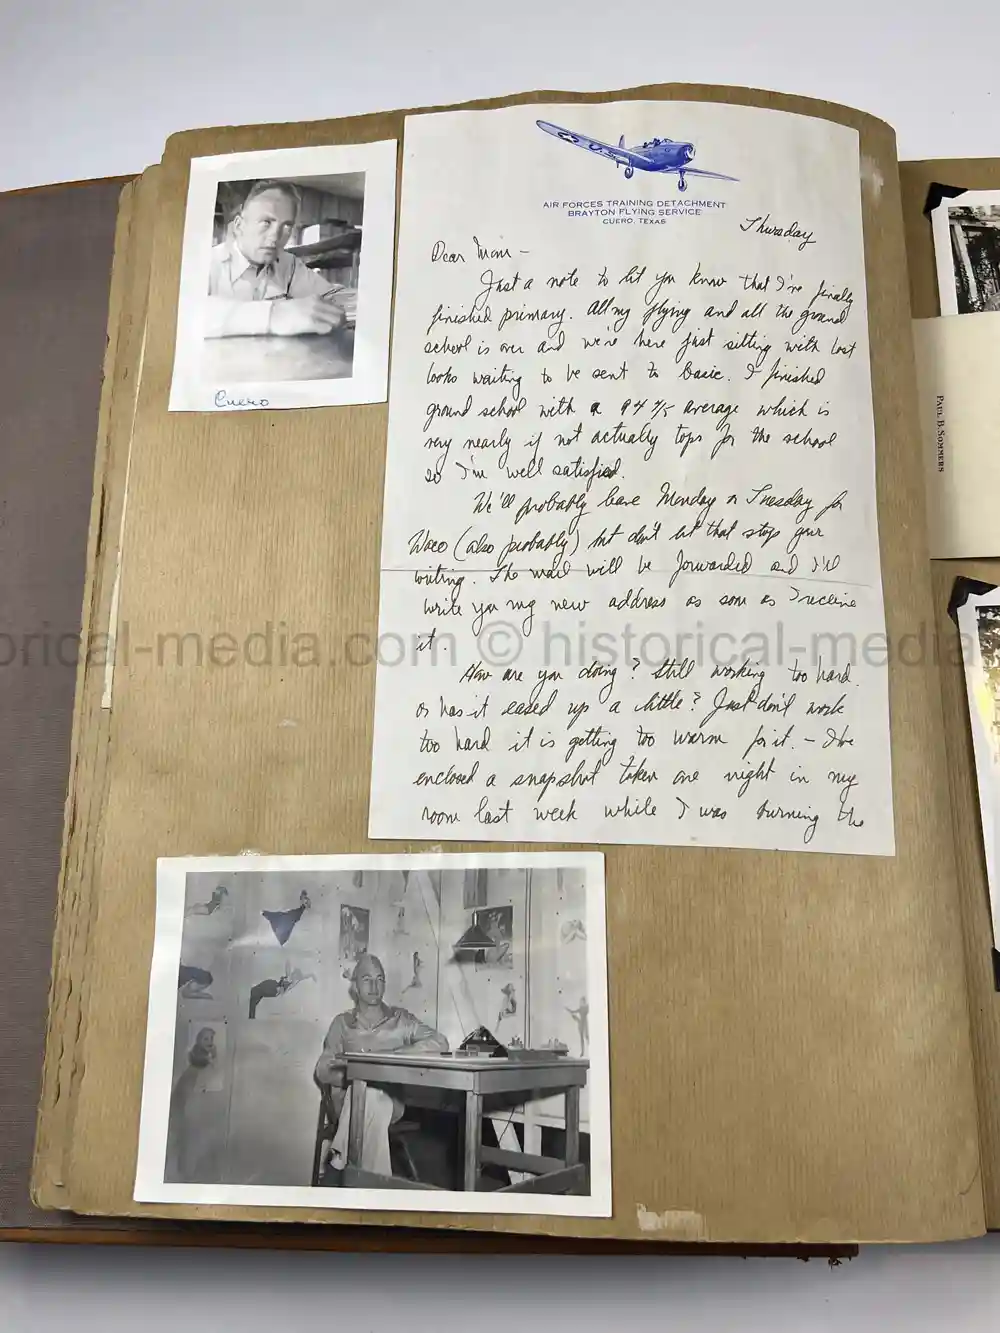 AIR FORCES TRAINING DETACHMENT
BRAYTON FLYING SERVICE
CUERO, TEXAS
Thursday
Dear Mom -
Just a note to let you know that I've finally
finished primary. All my flying and all the ground
school is over and we're here just sitting with lost
looks waiting to be sent to basic. I finished
ground school with a 94 4/5 average which is
very nearly if not actually tops for the school
so I'm well satisfied.
We'll probably leave Monday or Tuesday for
Waco (also probably) but don't let that stop your
writing. The mail will be forwarded and I'll
write you my new address as soon as I receive
it.
How are you doing? Still working too hard
or has it eased up a little? Just don't work
too hard it is getting too warm for it. - I've
enclosed a snapshot taken one night in my
room last week while I was burning the
Cuero
PAUL B. SOMMERS
orical-media.com © historical-media